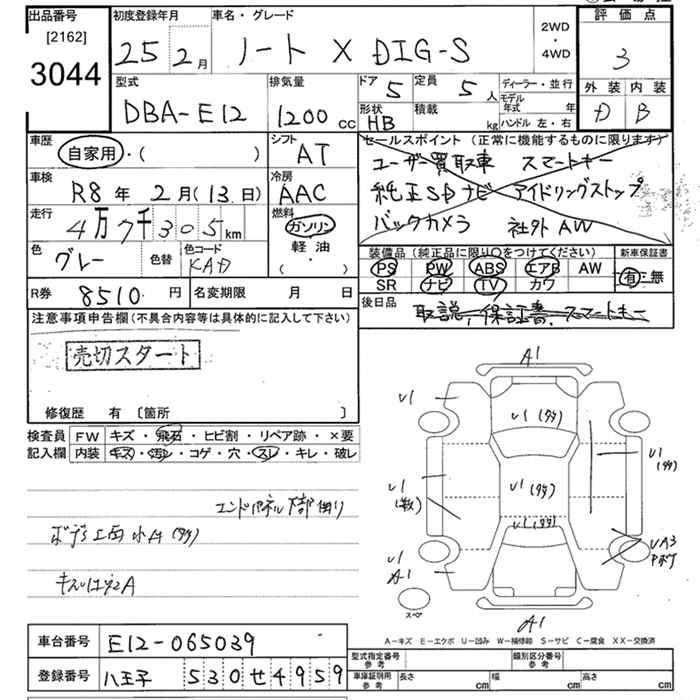 出品番号
[2162]
3044
初度登録年月
25 2月
車名・グレード
ノート X DIG-S
2WD
・
4WD
評価点
3
外装 内装
D B
型式
DBA-E12
排気量
1200cc
ドア
5
定員
5人
ディーラー・並行
モデル年式 年
ハンドル 左・右
形状
HB
積載
kg
車歴
自家用・( )
シフト
AT
セールスポイント(正常に機能するものに限ります)
ユーザー買取車 スマートキー
純正SDナビ アイドリングストップ
バックカメラ 社外AW
車検
R8年 2月(13日)
冷房
AAC
走行
4万7千305km
燃料
ガソリン
軽油・
( )
色
グレー
色替
色コード
KAD
装備品(純正品に限り○をつけてください)
新車保証書
PS PW ABS エアB AW
SR ナビ TV カワ
有・無
R券
8510円
名変期限 月 日
後日品
取説,保証書,スマートキー
注意事項申告欄(不具合内容等は具体的に記入して下さい)
売切スタート
修復歴 有 〔箇所 〕
検査員
記入欄
FW キズ・飛石・ヒビ割・リペア跡・×要
内装 キズ・汚レ・コゲ・穴・スレ・キレ・破レ
エンドパネル下部曲り
A1
U1
U1(多数)
U1
U1(多数)
U1(多数)
U1(多数)
U1(多数)
UA3
Pボケ
U1
A1
スペア
A1
A-キズ E-エクボ U-凹み W-補修跡 S-サビ C-腐食 XX-交換済
車台番号
E12-065039
登録番号
八王子 530せ4959
型式指定番号
参考
類別区分番号
参考
車庫証明用
参考
長さ cm
幅 cm
高さ cm